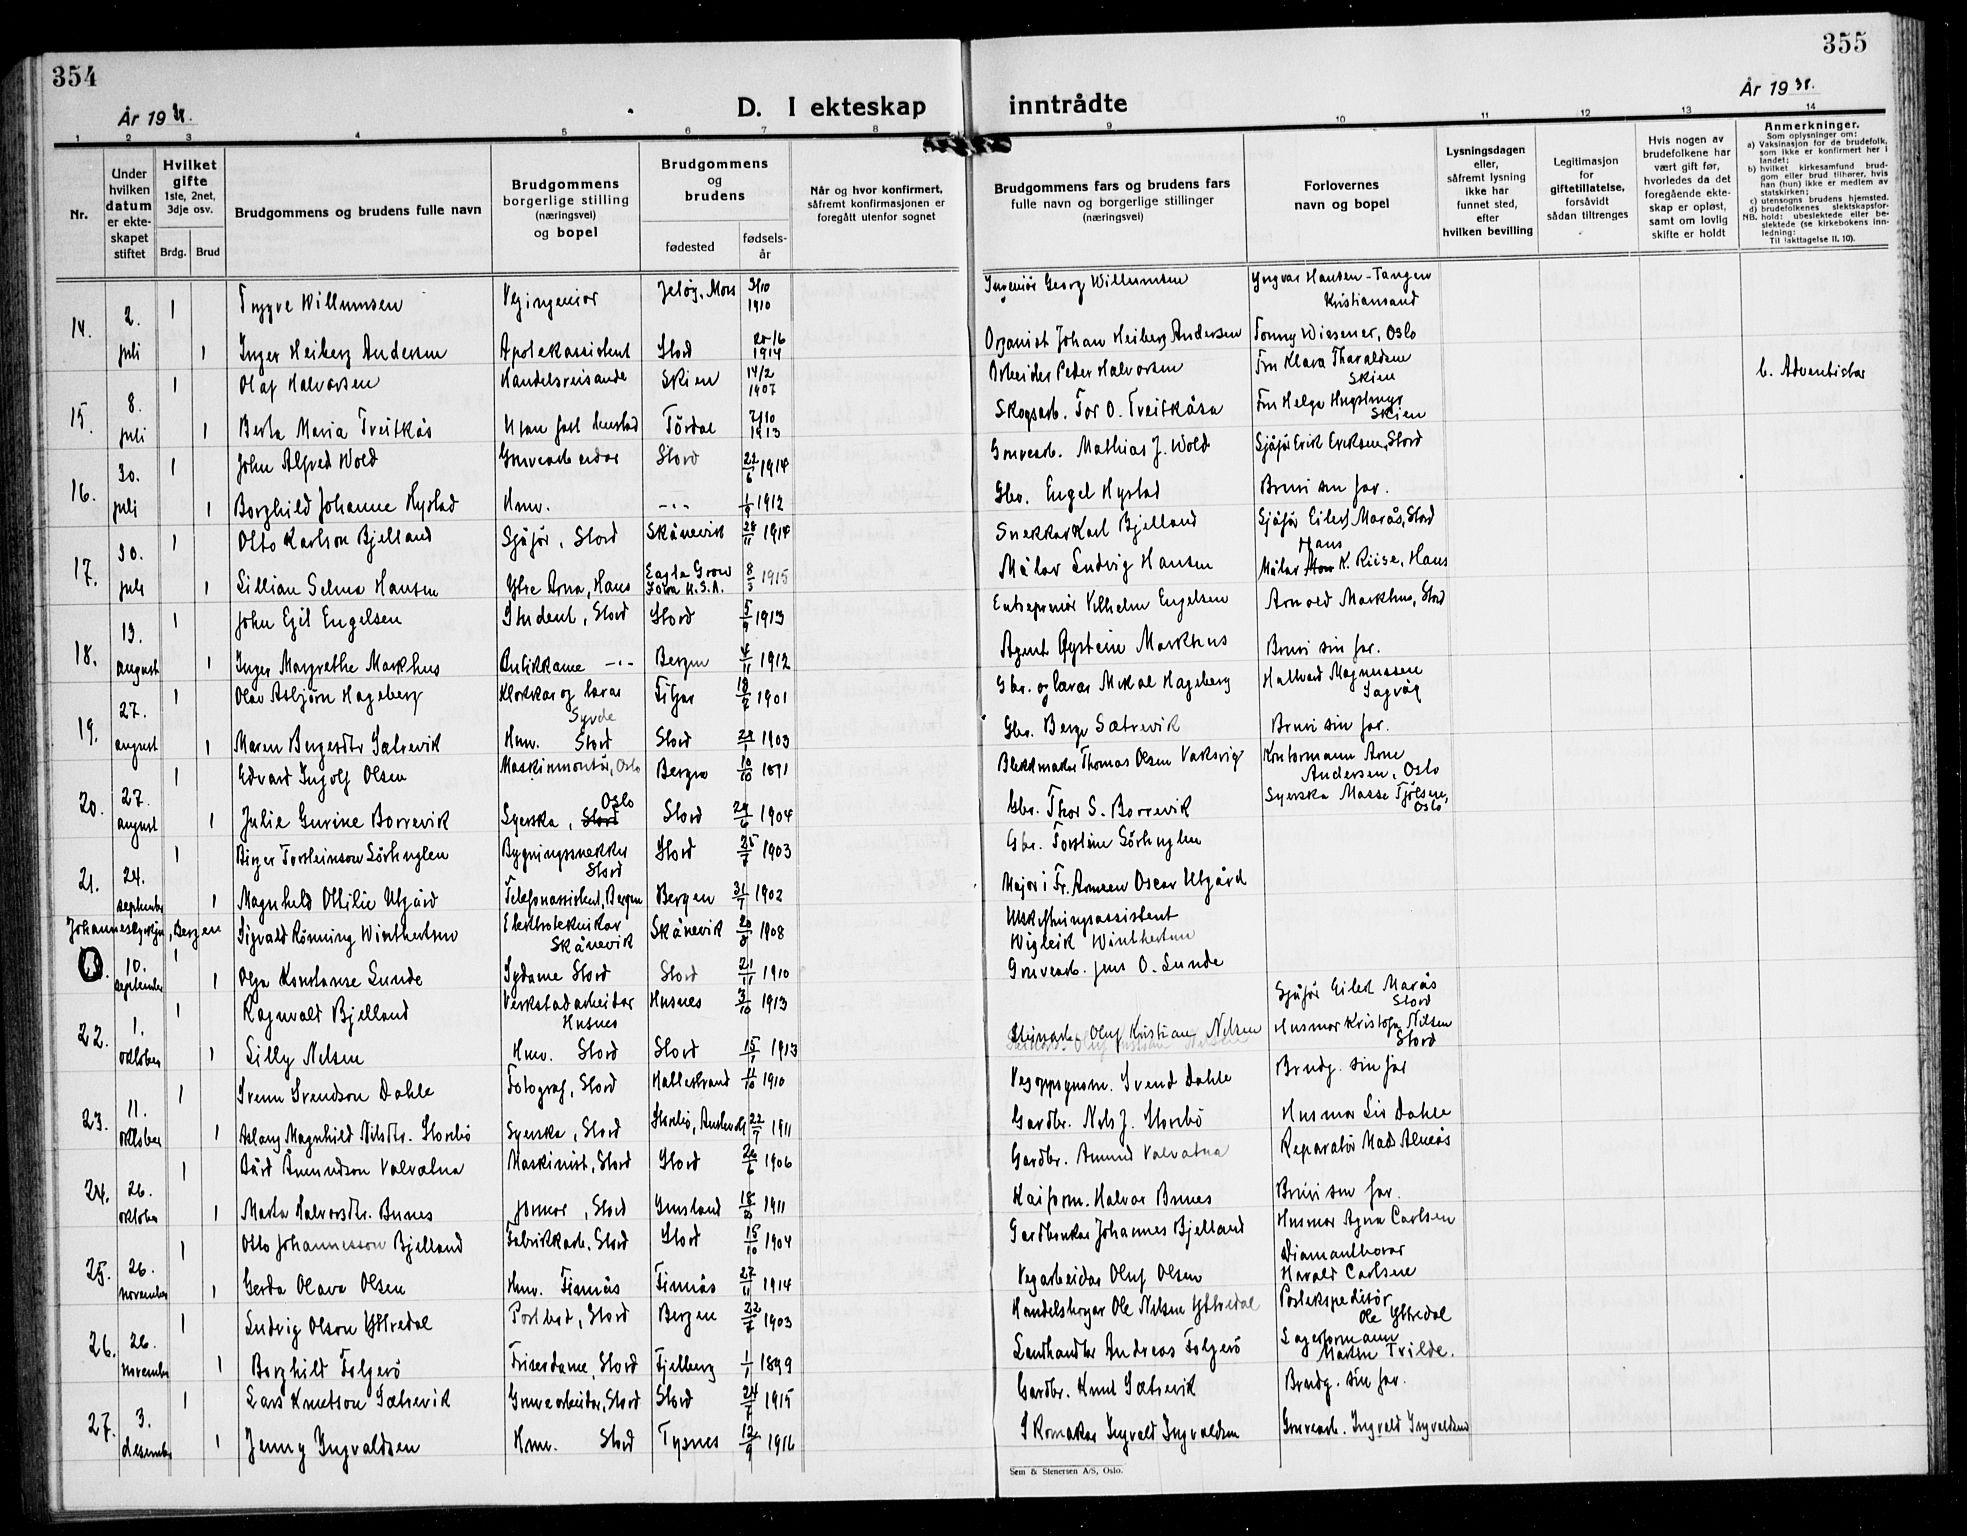 354
355
År 1938.
D. I ekteskap inntrådte
År 1938.
1 2 3 4 5 6 7 8 9 10 11 12 13 14
Nr.
Under hvilken datum er ekteskapet stiftet
Hvilket gifte
1ste, 2net, 3dje osv.
Brdg. Brud
Brudgommens og brudens fulle navn
Brudgommens borgerlige stilling (næringsvei) og bopel
Brudgommens og brudens
fødested
fødsels-år
Når og hvor konfirmert, såfremt konfirmasjonen er foregått utenfor sognet
Brudgommens fars og brudens fars fulle navn og borgerlige stillinger (næringsvei)
Forlovernes navn og bopel
Lysningsdagen eller, såfremt lysning ikke har funnet sted, efter hvilken bevilling
Legitimasjon for giftetillatelse, forsåvidt sådan tiltrenges
Hvis nogen av brudefolkene har vært gift før, hvorledes da det foregående ekteskap er opløst, samt om lovlig skifte er holdt
Anmerkninger.
Som oplysninger om:
a) Vaksinasjon for de brudefolk, som ikke er konfirmert her i landet;
b) hvilket kirkesamfund brudgom eller brud tilhører, hvis han (hun) ikke er medlem av statskirken;
c) utensogns brudens hjemsted.
d) brudefolkenes slektskapsforhold: ubeslektede eller beslektede (se kirkebokens innledning:
NB.
Til iakttagelse II. 10).
14. 2. juli 1 Trygve Willumsen Vegingeniør Jeløy, Moss 3/10 1910 Ingeniør Georg Willumsen Yngvar Hansen-Tangen Kristiansand
1 Inger Heiberg Andersen Apotekassistent Stord 1914 Organist Johan Heiberg Andersen Tonny Wiesener, Oslo
15. 8. juli 1 Olaf Halvorsen Handelsreisande Skien 14/2 1907 Arbeider Peder Halvorsen Fru Klara Tharaldsen Skien b. Adventistar
1 Berta Maria Treitkås Utan fast bustad Tørdal 7/10 1913 Skogsarb. Tor O. Treitkåsa Fru Helga Skien
16. 30. juli 1 John Alfred Wold Gruvearbeidar Stord 22/6 1914 Gruvearb. Mathias J. Wold Sjåfør Erik Eriksen, Stord
1 Borghild Johanne Hystad Husv. -"- 1912 Gbr. Engel Hystad Bruri sin far.
17. 30. juli 1 Otto Karlson Bjelland Sjåfør, Stord Skånevik 28/11 1914 Snekkar Karl Bjelland Sjåfør Eilert Marås, Stord
1 Lillian Selma Hansen Ytre Arna, Haus Eagle Grow Iowa U.S.A. 8/3 1915 Målar Ludvig Hansen Målar Hans K. Riise, Haus
18. 13. august 1 John Egil Engelsen Student, Stord Stord 5/9 1913 Entreprenør Vilhelm Engelsen Arnold Markhus, Stord
1 Inger Margrethe Markhus Butikkdame -"- Bergen 4/11 1912 Agent Øystein Markhus Bruri sin far.
19. 27. august 1 Olav Asbjørn Hageberg Klokkar og lærar Syvde Fitjar 18/2 1901 Gbr. og lærar Mikal Hageberg Hallvard Magnussen Sagvåg
1 Maren Bergesdtr Sætrevik Husv. Stord Stord 1903 Gbr. Berge Sætrevik Bruri sin far.
20. 27. august 1 Edvard Ingolf Olsen Maskinmontør, Oslo Bergen 10/10 1891 Blikkmaker Thomas Olsen Vaksvig Kontormann Arne Andersen, Oslo
1 Julie Gurine Borrevik Syerska, Stord Oslo Stord 24/6 1904 Gbr. Thor S. Borrevik Syerska Masse Tjølsen, Oslo
21. 24. september 1 Birger Torsteinson Sørhuglen Bygningssnekker Stord Stord 1903 Gbr. Torstein Sørhuglen
1 Magnhild Ottilie Utgård Telefonassistent, Bergen Bergen 31/1 1902 Major i Fr. Armeen Oscar Utgård
Johanneskyrkja, Bergen
0. 10. september 1 Sigvald Rönning Winthertun Elektrotekniker Skånevik Skånevik 20/8 1908 Utskiftningsassistent Wigleik Winthertun
1 Olga Konstanse Lunde Sydame Stord Stord 21/11 1910 Gruvearb. Jens O. Lunde
22. 1. oktober 1 Ragnvald Bjelland Verkstadarbeidar Husnes Husnes 3/10 1913 Sjåfør Eilert Marås Stord
1 Lilly Nilsen Husv. Stord Stord 15/1 1913 Steinarb. Oluf Kristian Nilsen Husmor Kristofa Nilsen Stord
23. 11. oktober 1 Svenn Svendson Dahle Fotograf, Stord Hatlestrand 11/10 1910 Vegoppsynsm. Svend Dahle Brudg. sin far
1 Aslaug Magnhild Nilsdtr. Storebø Syerska, Stord Storebø, Austevoll 22/7 1911 Gardbr. Nils J. Storebø Husmor Liv Dahle
24. 26. oktober 1 Bård Åmundson Valvatna Maskinist, Stord Stord 26/6 1906 Gardbr. Åmund Valvatna Reparatør Mads Alnæs
1 Marta Halvorsdtr. Bunes Jomor, Stord Gunsland 18/8 1911 Kaiform. Halvor Bunes Bruri sin far.
25. 26. november 1 Otto Johannesson Bjelland Fabrikkarb. Stord Stord 15/10 1904 Gardbrukar Johannes Bjelland Husmor Agna Carlsen
1 Gerda Olava Olsen Husv. Finnås Finnås 27/11 1914 Vegarbeidar Oluf Olsen Diamantborar Harald Carlsen
26. 26. november 1 Ludvig Olson Yttredal Postbud, Stord Bergen 1903 Handelsborgar Ole Nilsen Yttredal Postekspeditør Ole Yttredal
1 Borghild Folgerö Friserdame, Stord Fjelberg 1/1 1899 Landhandlar Andreas Folgerö Lagerformann Martin Tvilde.
27. 3. desember 1 Lars Knutson Sætrevik Gruvearbeidar, Stord Stord 1915 Gardbr. Knut Sætrevik Brudg. sin far.
1 Jenny Ingvaldsen Husv. Stord Tysnes 12/9 1916 Skomakar Ingvald Ingvaldsen Gruvearb. Ingvald Ingvaldsen
Sem & Stenersen A/S, Oslo.